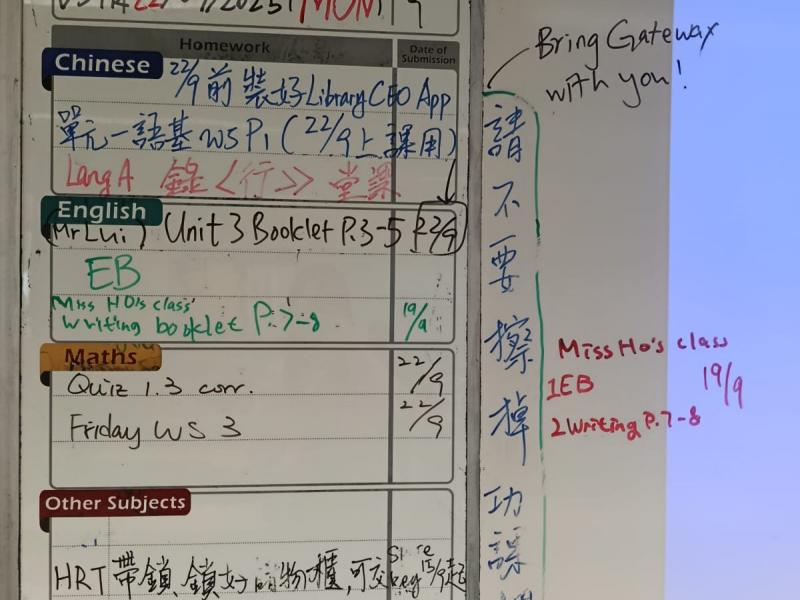 22/9/2025 MON
Homework
Date of Submission
Chinese
22/9前裝好Library CEO App
單元一語基 WS P1 (22/9上課用)
Lang A 錄〈行〉 堂課
English
(Mr Lui) Unit 3 Booklet P.3-5 22/9
EB
Miss HO's class
Writing booklet P.7-8 19/9
Maths
Quiz 1.3 corr. 22/9
Friday WS 3 22/9
Other Subjects
HRT 帶鎖, 鎖好 物櫃, 可交 key 15/9起
Bring Gateway
with you!
請不要擦掉功課
Miss Ho's class
1EB 19/9
2Writing P.7-8